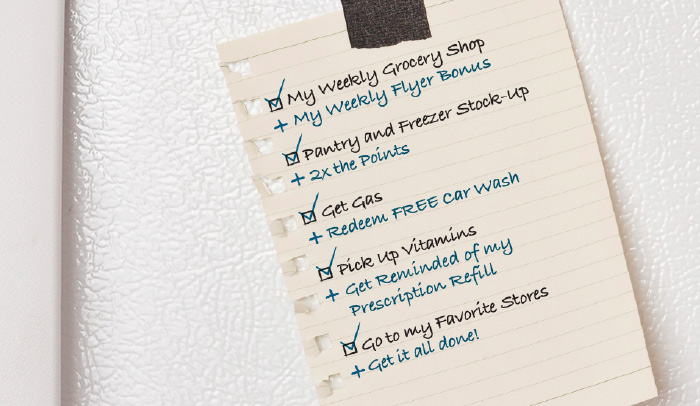 My Weekly Grocery Shop
+ My Weekly Flyer Bonus
Pantry and Freezer Stock-Up
+ 2x the Points
Get Gas
+ Redeem FREE Car Wash
Pick Up Vitamins
+ Get Reminded of my
Prescription Refill
Go to my Favorite Stores
+ Get it all done!